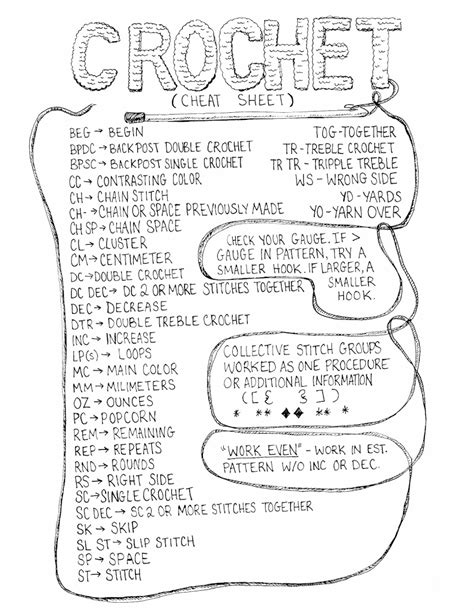 CROCHET
(CHEAT SHEET)
BEG → BEGIN
BPDC → BACKPOST DOUBLE CROCHET
BPSC → BACKPOST SINGLE CROCHET
CC → CONTRASTING COLOR
CH → CHAIN STITCH
CH- → CHAIN OR SPACE PREVIOUSLY MADE
CH SP → CHAIN SPACE
CL → CLUSTER
CM → CENTIMETER
DC → DOUBLE CROCHET
DC DEC → DC 2 OR MORE STITCHES TOGETHER
DEC → DECREASE
DTR → DOUBLE TREBLE CROCHET
INC → INCREASE
LP(S) → LOOPS
MC → MAIN COLOR
MM → MILIMETERS
OZ → OUNCES
PC → POPCORN
REM → REMAINING
REP → REPEATS
RND → ROUNDS
RS → RIGHT SIDE
SC → SINGLE CROCHET
SC DEC → SC 2 OR MORE STITCHES TOGETHER
SK → SKIP
SL ST → SLIP STITCH
SP → SPACE
ST → STITCH
TOG - TOGETHER
TR - TREBLE CROCHET
TR TR - TRIPPLE TREBLE
WS - WRONG SIDE
YD - YARDS
YO - YARN OVER
CHECK YOUR GAUGE. IF >
GAUGE IN PATTERN, TRY A
SMALLER HOOK. IF LARGER, A
SMALLER
HOOK.
COLLECTIVE STITCH GROUPS
WORKED AS ONE PROCEDURE
OR ADDITIONAL INFORMATION
( [ { } ] )
* ** ♦♦ ** *
"WORK EVEN" - WORK IN EST.
PATTERN W/O INC OR DEC.